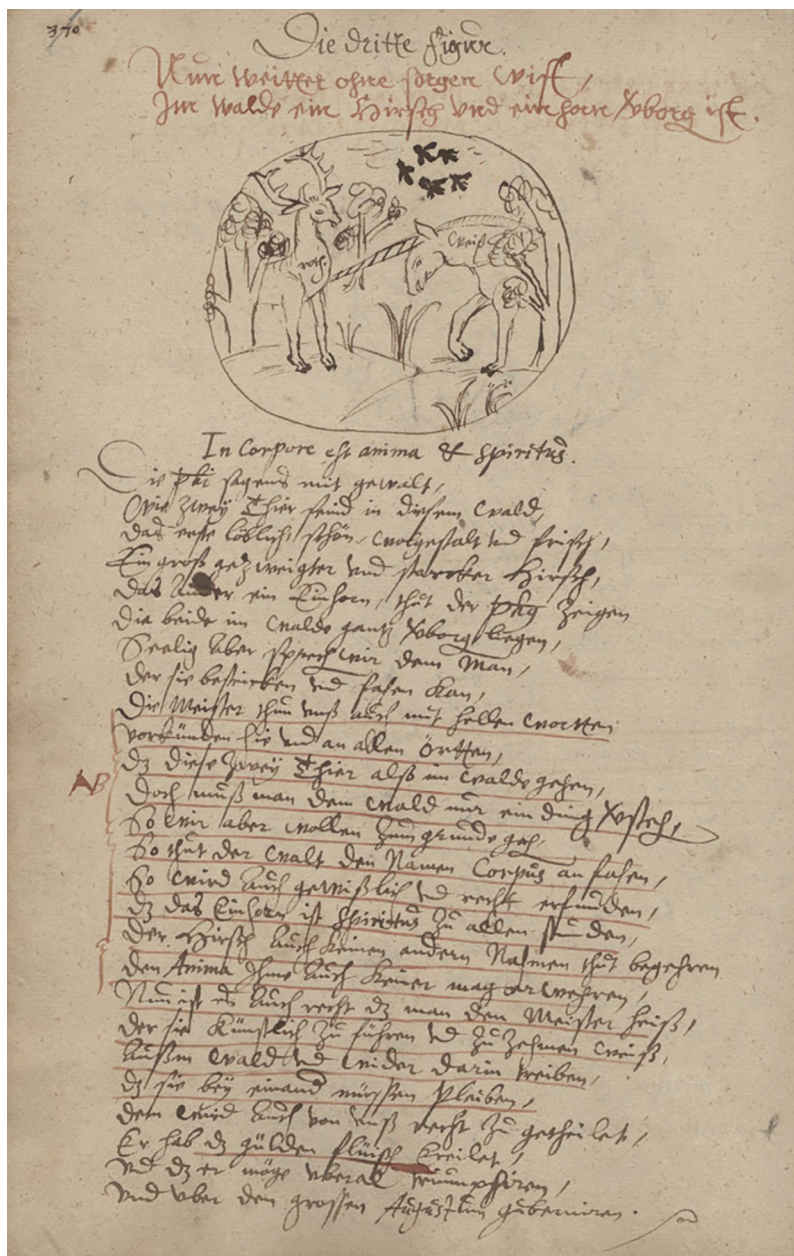 370
Die dritte Figur.
Nun weitter ohne sorgen wist,
Im Walde ein Hirsch vnd einhorn Xborg ist.
Weiß
In Corpore est anima & spiritus.
Die Phi sagens mit gewalt,
Wie zwey Thier seind in diesem Wald,
das erste löblich, schön, wolgestalt vnd frisch,
Ein groß gezweigter vnd starcker Hirsch,
das Ander ein Einhorn, thut der Phg zeigen
die beide im walde gantz Xborg liegen,
Seelig aber sprech wir dem Man,
der sie bestricken vnd fahen kan,
Die Meister thun vnß auch mit hellen wortten
vorkünden hie vnd an allen örtten,
dz diese zwey Thier alß im walde gehen,
NB
Doch muß man dem wald nur ein ding Xsteh,
So wir aber wollen zum grunde geh,
So thut der walt den Namen Corpus an fahen,
So wird auch gewißlich vd recht erfunden,
dz das Einhorn ist spiritus zu allen stunden,
Der Hirsch auch keinen andern Nahmen thut begehren
den Anima Ihme auch keiner mag erwehren,
Nun ist es auch recht dz man den Meister heiß,
der sie Künstlich zu führen vd zu zehmen weiß,
Außm wald vd wider darin treiben,
dz sie bey einand müssen pleiben,
dem wird auch von vnß recht zu getheilet,
Er hab dz gülden flüisch ereilet,
vnd dz er möge vberal triumphiren,
vnd vber den grossen Augustum guberniren.